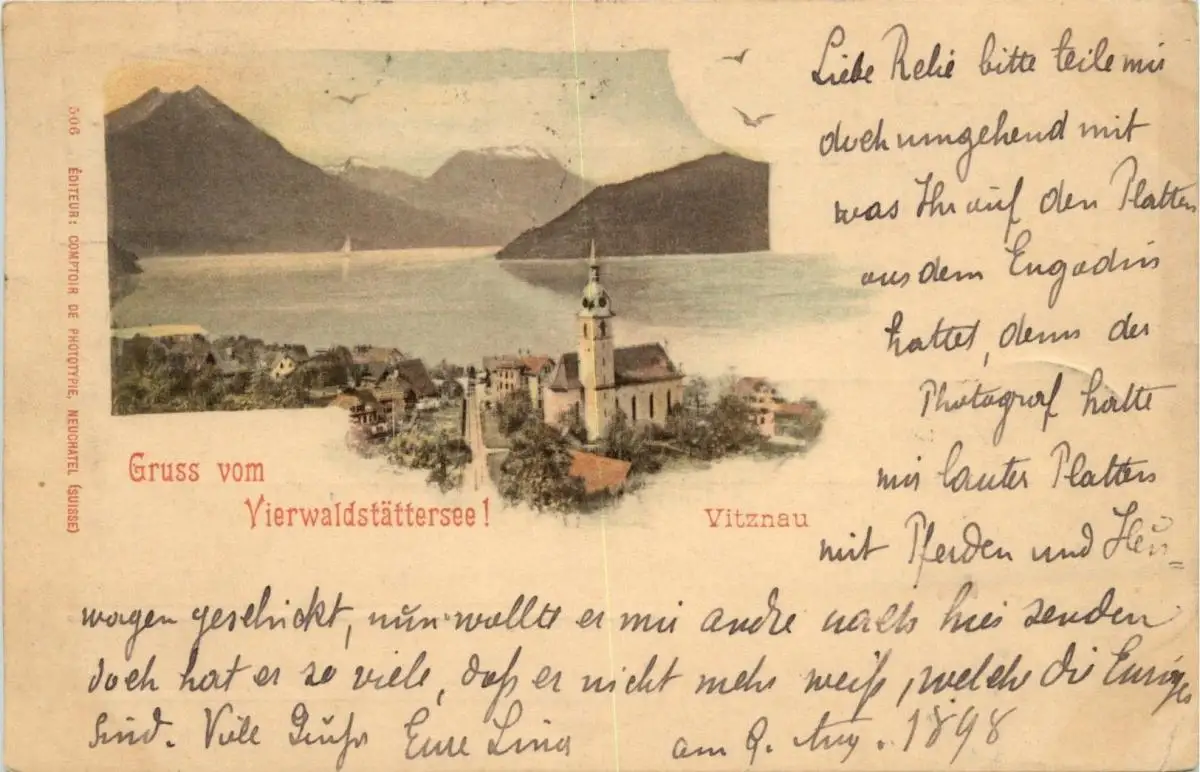 506 ÉDITEUR: COMPTOIR DE PHOTOTYPIE, NEUCHATEL (SUISSE)
Gruss vom
Vierwaldstättersee!
Vitznau
Liebe bitte teile mir
doch umgehend mit
was Ihr auf den Platten
aus dem Engadin
hattet, denn der
Photograf hatte
mir lauter Platten
mit Pferden und Heu=
wagen geschickt, nun wollte er mir andre nach hier senden
doch hat er so viele, daß er nicht mehr weiß, welche die Eurigen
sind. Viele Grüße Eure Lina am 9. Aug. 1898